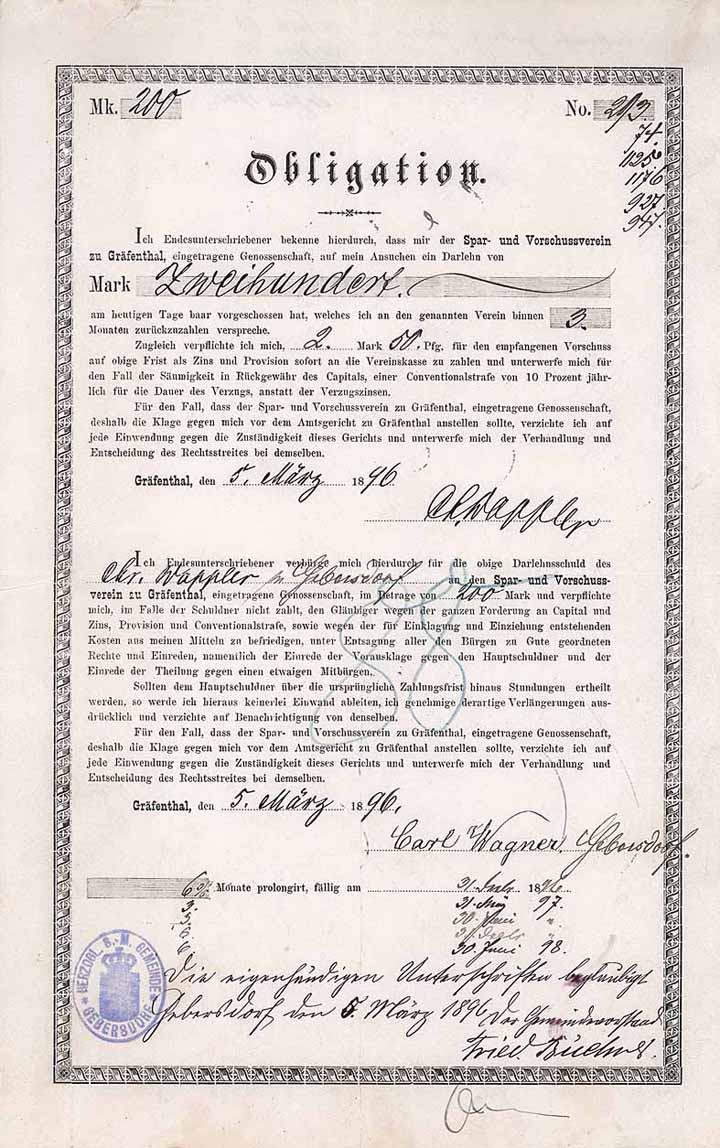 Mk. 200 No. 213.
74.
1125.
1176
927.
947.
Obligation.
Ich Endesunterschriebener bekenne hierdurch, dass mir der Spar- und Vorschussverein
zu Gräfenthal, eingetragene Genossenschaft, auf mein Ansuchen ein Darlehn von
Mark Zweihundert.
am heutigen Tage baar vorgeschossen hat, welches ich an den genannten Verein binnen 3.
Monaten zurückzuzahlen verspreche.
Zugleich verpflichte ich mich, 2. Mark 50. Pfg. für den empfangenen Vorschuss
auf obige Frist als Zins und Provision sofort an die Vereinskasse zu zahlen und unterwerfe mich für
den Fall der Säumigkeit in Rückgewähr des Capitals, einer Conventionalstrafe von 10 Prozent jähr-
lich für die Dauer des Verzugs, anstatt der Verzugszinsen.
Für den Fall, dass der Spar- und Vorschussverein zu Gräfenthal, eingetragene Genossenschaft,
deshalb die Klage gegen mich vor dem Amtsgericht zu Gräfenthal anstellen sollte, verzichte ich auf
jede Einwendung gegen die Zuständigkeit dieses Gerichts und unterwerfe mich der Verhandlung und
Entscheidung des Rechtsstreites bei demselben.
Gräfenthal, den 5. März 1896
Chr. Wappler
Ich Endesunterschriebener verbürge mich hierdurch für die obige Darlehnsschuld des
Chr. Wappler v. Gebersdorf an den Spar- und Vorschuss-
verein zu Gräfenthal, eingetragene Genossenschaft, im Betrage von 200 Mark und verpflichte
mich, im Falle der Schuldner nicht zahlt, den Gläubiger wegen der ganzen Forderung an Capital und
Zins, Provision und Conventionalstrafe, sowie wegen der für Einklagung und Einziehung entstehenden
Kosten aus meinen Mitteln zu befriedigen, unter Entsagung aller den Bürgen zu Gute geordneten
Rechte und Einreden, namentlich der Einrede der Vorausklage gegen den Hauptschuldner und der
Einrede der Theilung gegen einen etwaigen Mitbürgen.
Sollten dem Hauptschuldner über die ursprüngliche Zahlungsfrist hinaus Stundungen ertheilt
werden, so werde ich hieraus keinerlei Einwand ableiten, ich genehmige derartige Verlängerungen aus-
drücklich und verzichte auf Benachrichtigung von denselben.
Für den Fall, dass der Spar- und Vorschussverein zu Gräfenthal, eingetragene Genossenschaft,
deshalb die Klage gegen mich vor dem Amtsgericht zu Gräfenthal anstellen sollte, verzichte ich auf
jede Einwendung gegen die Zuständigkeit dieses Gerichts und unterwerfe mich der Verhandlung und
Entscheidung des Rechtsstreites bei demselben.
Gräfenthal, den 5. März 1896.
Carl Wagner. Gebersdorf.
6 Monate prolongirt, fällig am 31. Decbr. 1896.
3. 31. März 97.
3. 30. Juni "
6 31. Decbr "
6 30. Juni 98.
HERZOGL. S. M. GEMEINDE
GEBERSDORF
Die eigenhändigen Unterschriften beglaubigt
Gebersdorf den 5. März 1896 Der Gemeindevorstand
Fried. Büchner.